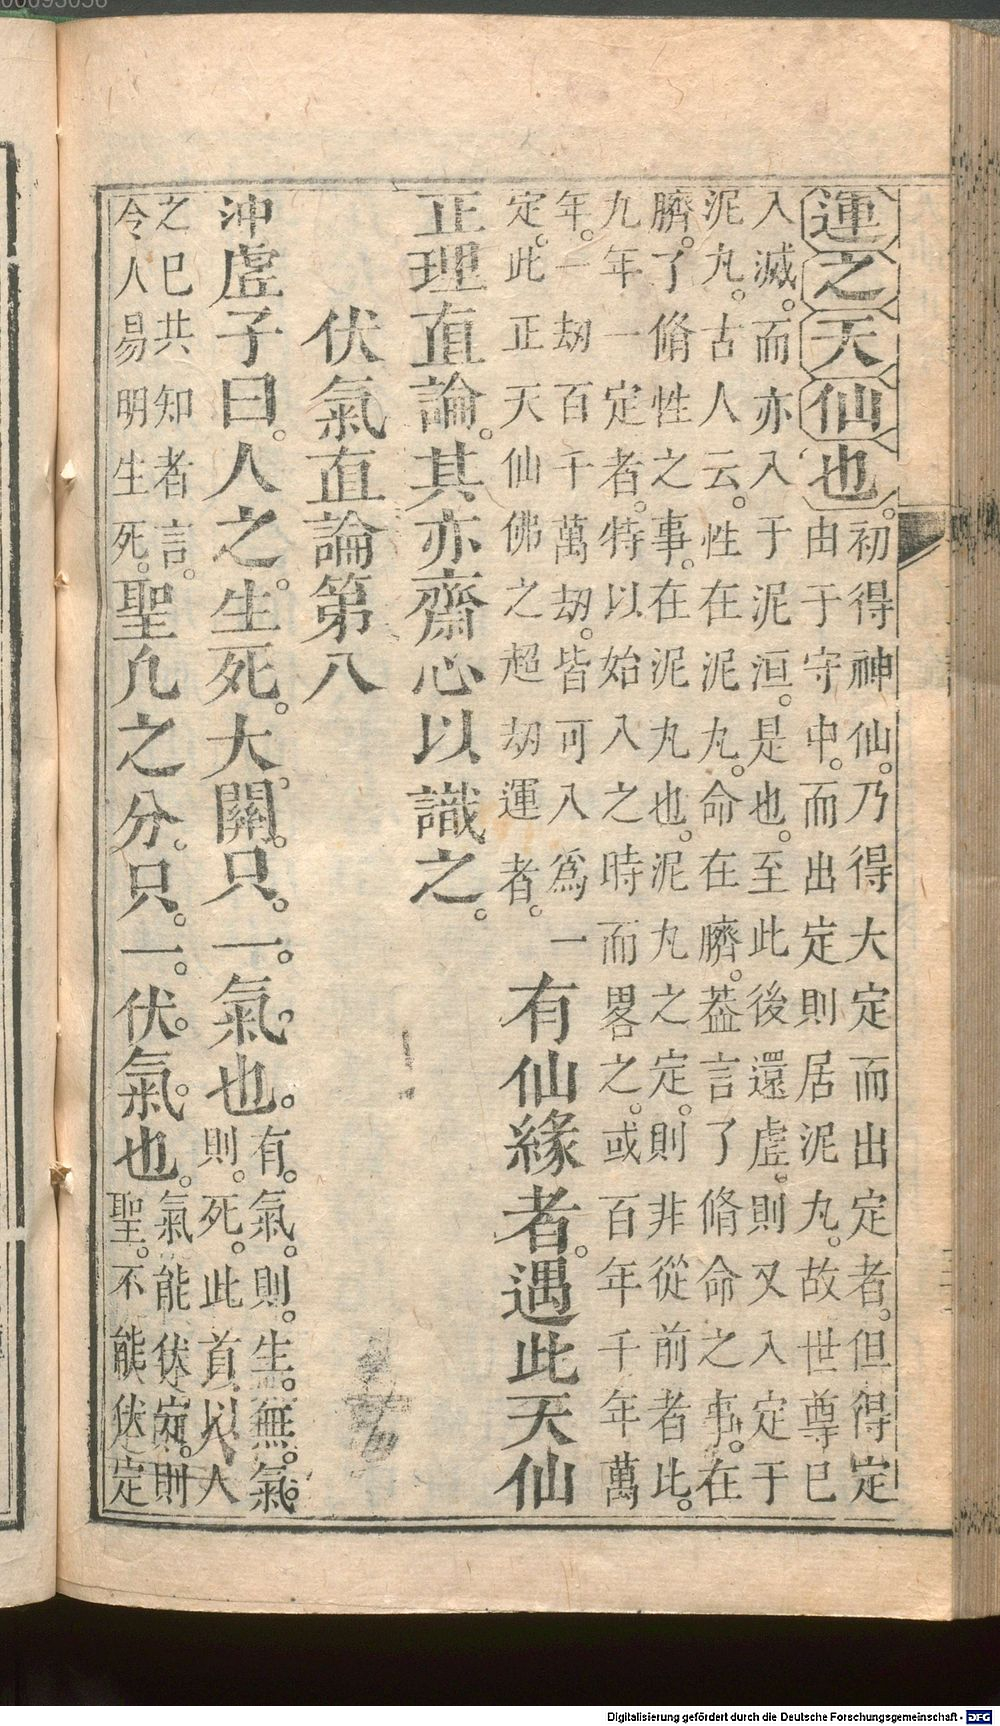 運之天仙也。
初得神仙。乃得大定而出定者。但得定
由于守中。而出定則居泥丸。故世尊已
入滅。而亦入于泥洹。是也。至此後還虛。則又入定于
泥丸。古人云。性在泥丸。命在臍。葢言了脩命之事。在
臍。了脩性之事。在泥丸也。泥丸之定。則非從前者此。
九年一定者。特以始入之時而畧之。或百年千年萬
年。一劫百千萬劫。皆可入爲一
定。此正天仙佛之超劫運者。
有仙緣者。遇此天仙
正理直論。其亦齋心以識之。
伏氣直論第八
沖虛子曰。人之。生死。大。關。只。一。氣。也。
有。氣。則。生。無。氣。
則。死。此首以人
之已共知者言。
令人易明生死。
聖凡之分。只。一。伏。氣。也。
氣能伏定。則
聖。不能伏定
Digitalisierung gefördert durch die Deutsche Forschungsgemeinschaft - DFG